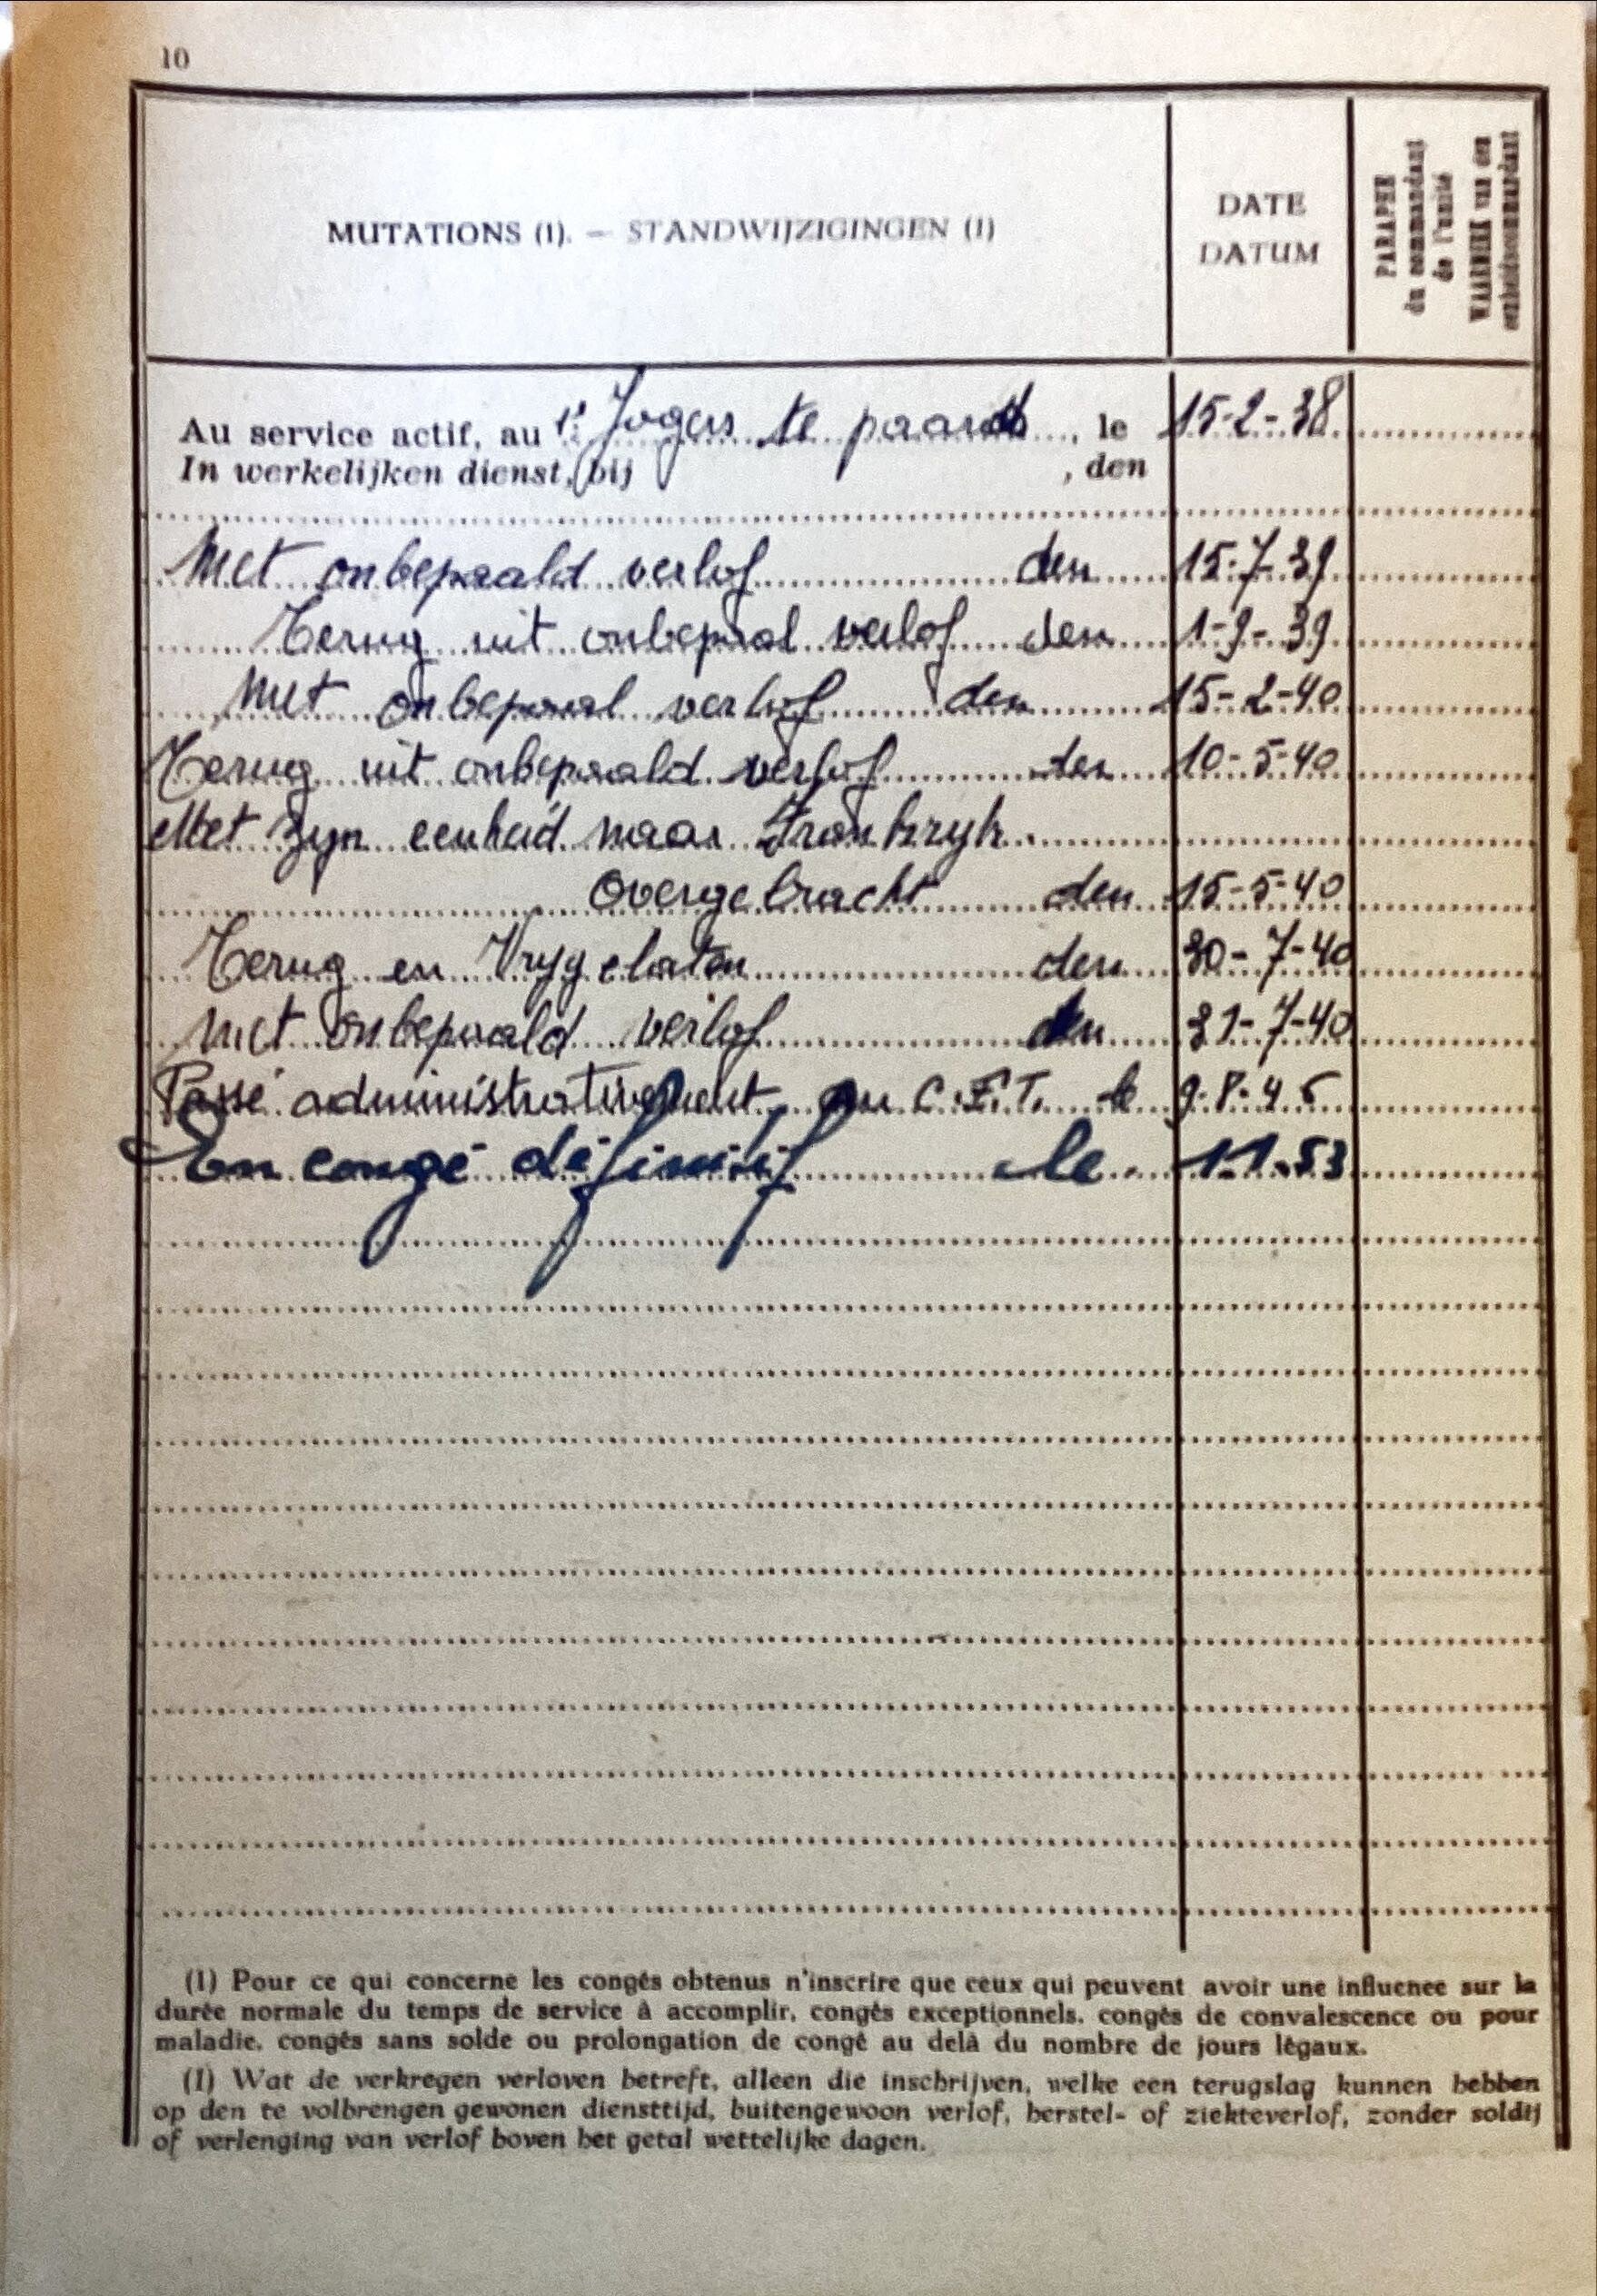 10
MUTATIONS (1). — STANDWIJZIGINGEN (1)
DATE
DATUM
PARAPHE
du commandant
de l'unité
WAARMERK van den
eenheidscommandant
Au service actif, au 1e Jagers te paard , le 15-2-38
In werkelijken dienst, bij , den
Met onbepaald verlof den 15-7-39
Terug uit onbepaal verlof den 1-9-39
Met onbepaal verlof den 15-2-40
Terug uit onbepaald verlof den 10-5-40
Met zyn eenheid naar Frankryk
overgebracht den 15-5-40
Terug en Vrygelaten den 30-7-40
Met onbepaald verlof den 31-7-40
Passé administrativement au C.F.T. le 9-8-45
En congé définitif le 1.1.53
(1) Pour ce qui concerne les congés obtenus n'inscrire que ceux qui peuvent avoir une influence sur la
durée normale du temps de service à accomplir, congés exceptionnels, congés de convalescence ou pour
maladie, congés sans solde ou prolongation de congé au delà du nombre de jours légaux.
(1) Wat de verkregen verloven betreft, alleen die inschrijven, welke een terugslag kunnen hebben
op den te volbrengen gewonen diensttijd, buitengewoon verlof, herstel- of ziekteverlof, zonder soldij
of verlenging van verlof boven het getal wettelijke dagen.